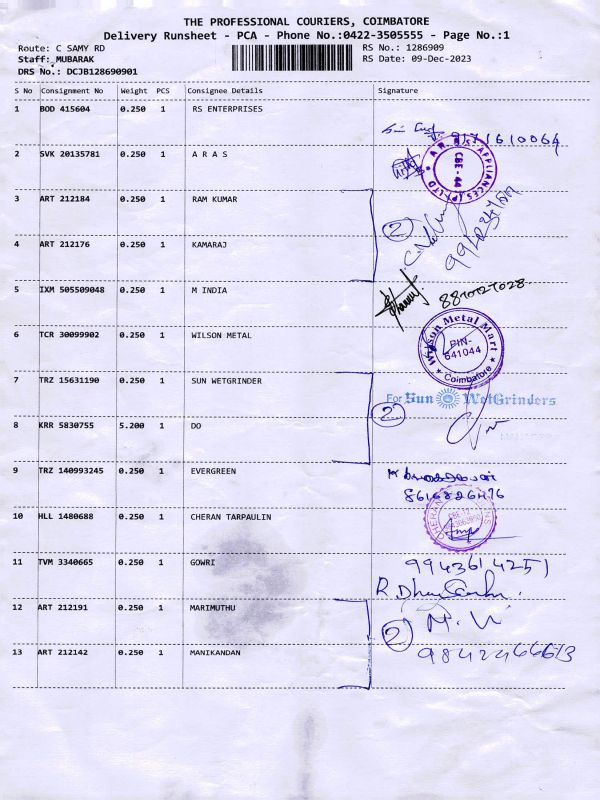 THE PROFESSIONAL COURIERS, COIMBATORE
Delivery Runsheet - PCA - Phone No.:0422-3505555 - Page No.:1
Route: C SAMY RD RS No.: 1286909
Staff: MUBARAK RS Date: 09-Dec-2023
DRS No.: DCJB128690901
S No Consignment No Weight PCS Consignee Details Signature
1 BOD 415604 0.250 1 RS ENTERPRISES
9171610064
2 SVK 20135781 0.250 1 A R A S
A.R.A.S APPLIANCES (P) LTD
CBE - 44
3 ART 212184 0.250 1 RAM KUMAR
2
4 ART 212176 0.250 1 KAMARAJ
5 IXM 505509048 0.250 1 M INDIA
6 TCR 30099902 0.250 1 WILSON METAL
Wilson Metal Mart
PIN-
641044
* Coimbatore *
7 TRZ 15631190 0.250 1 SUN WETGRINDER
For Sun WetGrinders
2
8 KRR 5830755 5.200 1 DO
9 TRZ 140993245 0.250 1 EVERGREEN
8616826476
10 HLL 1480688 0.250 1 CHERAN TARPAULIN
CHERAN
11 TVM 3340665 0.250 1 GOWRI
9943614251
12 ART 212191 0.250 1 MARIMUTHU
2
13 ART 212142 0.250 1 MANIKANDAN
9842466613